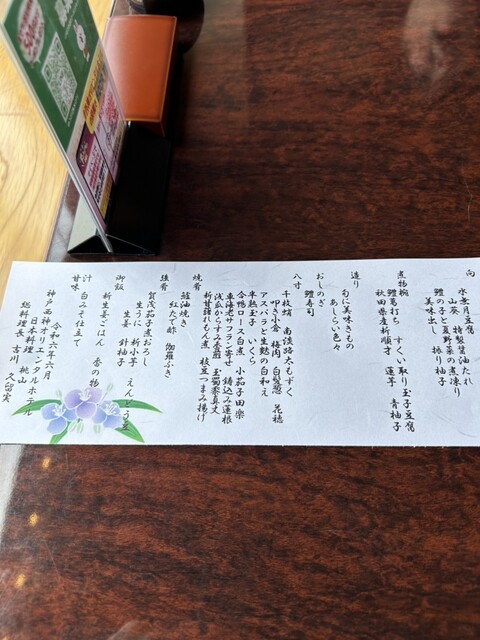 向
水無月豆腐
山葵 特製醤油たれ
鱧の子と夏野菜の煮凍り
美味出し 振り柚子
煮物椀
鱧葛打ち すくい取り玉子豆腐
秋田県産新順才 蓮芋 青柚子
造り
旬に美味きもの
あしらい色々
おしのぎ
鱧寿司
八寸
干枝蛸 南淡路太もずく
叩き小倉 梅肉 白髪葱 花穂
アスパラと生麩の白和え
半熟玉子 いくら
合鴨ロース白煮 小茄子田楽
車海老サフラン寄せ 鋳込み蓮根
浅瓜からすみ香煎 玉蜀黍真丈
新甘藷れもん煮 枝豆つまみ揚げ
焼肴
醤油焼き
紅たで酢 伽羅ふき
強肴
賀茂茄子煮おろし
生うに 新小芋 えんどう豆
生姜 針柚子
御飯
新生姜ごはん 香の物
汁 白みそ仕立て
甘味
令和六年六月
神戸西神オリエンタルホテル
日本料理 桃山
総料理長 古川 久留実